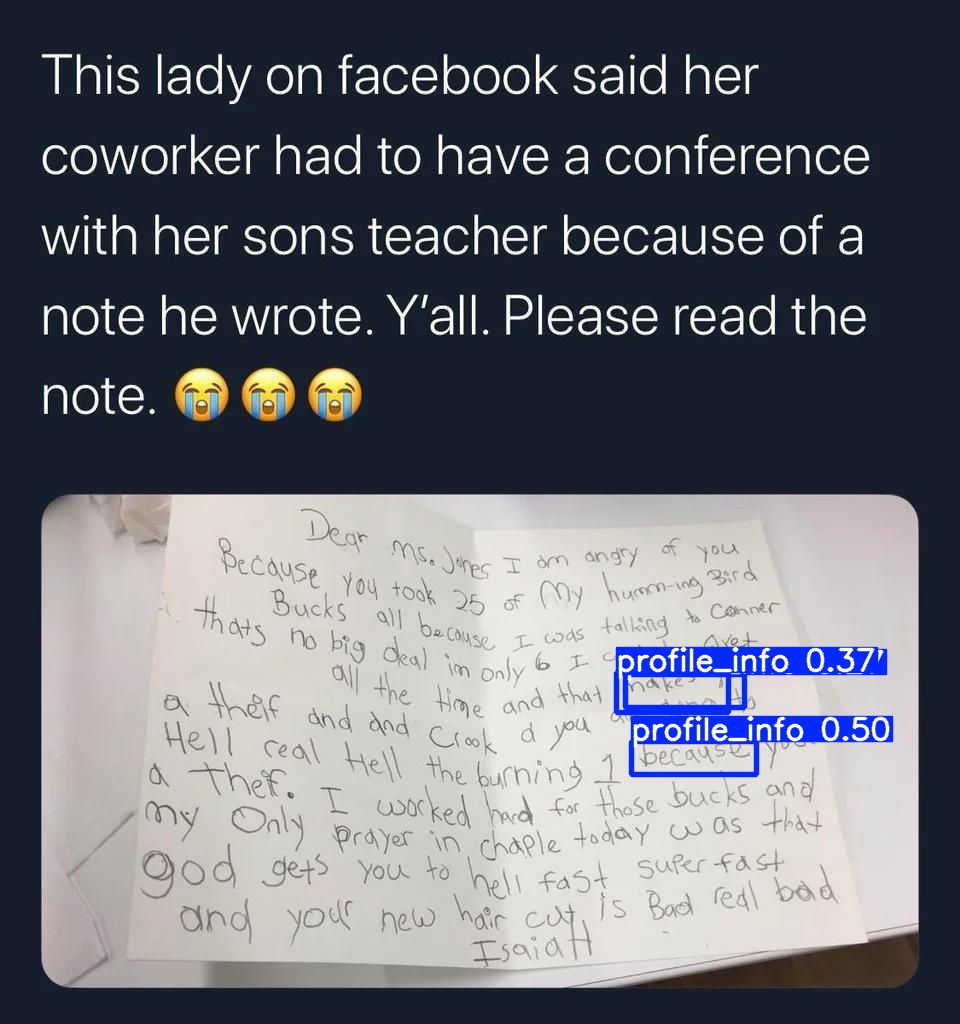 This lady on facebook said her
coworker had to have a conference
with her sons teacher because of a
note he wrote. Y'all. Please read the
note. 😭😭😭
Dear Ms. Jones I am angry of you
Because you took 25 of My humm-ing Bird
Bucks all because I wds talking to Conner
thats no big deal im only 6 I
all the time and that makes
profile_info 0.37'
a theif and and Crook d you to
profile_info 0.50
Hell real Hell the burning 1 because
a Thef. I worked hard for those bucks and
my Only prayer in chaple today was that
god gets you to hell fast super fast
and your new hair cut is Bad real bad
IsaiaH